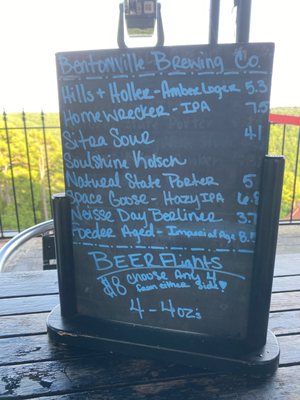 Bentonville Brewing Co.
Hills + Holler - Amber Lager 5.3
Homewrecker - IPA 7.5
Sitra Sour 4.1
Soulshine Kolsch
Natural State Porter 5
Space Goose - Hazy IPA 6.8
Neisse Day Berliner 3.7
Foeder Aged - Imperial Age 8.5
BEER Flights
$8 choose Any 4
from either Side!
4 - 4oz's